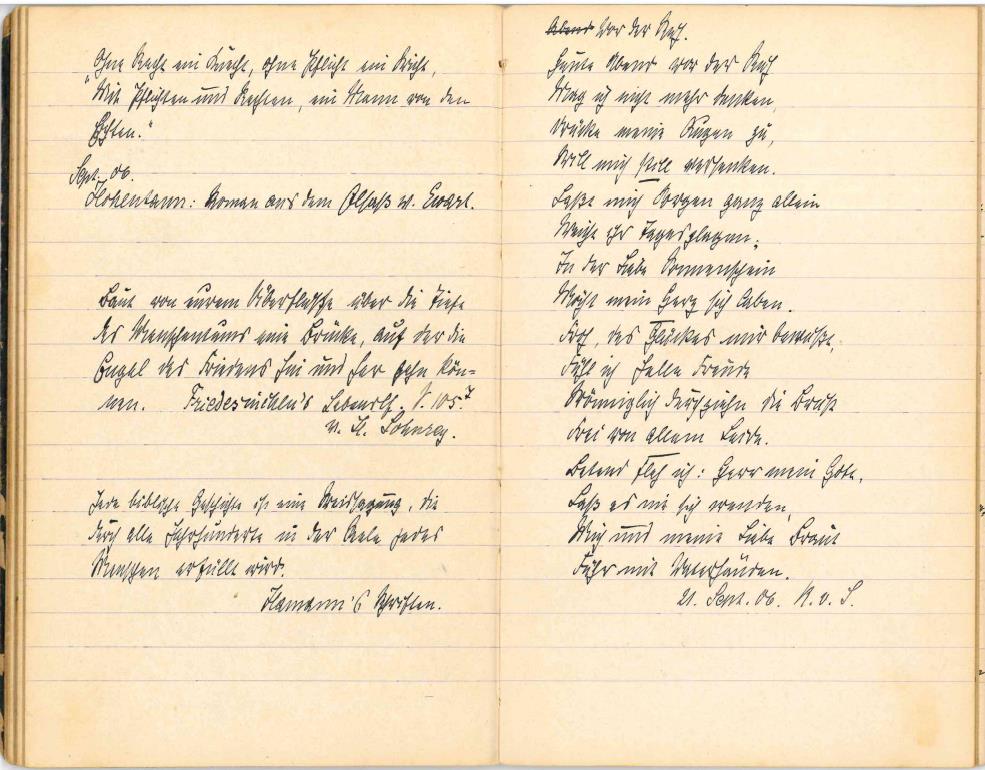 "Ohne Recht ein Knecht, ohne Pflicht ein Wicht,
"Mit Pflichten und Rechten, ein Mann von den
Echten."
Sept. 06.
Hohentann: Roman aus dem Elsaß v. Ewart.
Baut von eurem Überflusse über die Tiefe
des Menschentums eine Brücke, auf der die
Engel des Friedens hin und her gehn kön=
nen. Friedesinchen's Lebenslf. S. 105.
v. H. Sohnrey.
Jede biblische Geschichte ist eine Weissagung, die
durch alle Jahrhunderte in der Seele jedes
Menschen erfüllt wird.
Hamann's Schriften.
Abend Vor der Ruh.
Heute Abend vor der Ruh
Mag ich nicht mehr denken,
Drücke meine Augen zu,
Will mich still versenken.
Laßt mich Sorgen ganz allein
Weicht ihr Tagesplagen;
In der Liebe Sonnenschein
Möcht mein Herz sich laben.
Froh, des Glückes mir bewußt,
Fühl ich helle Freude
Wonniglich durchziehn die Brust
Frei von allem Leide.
Betend fleh ich: Herr mein Gott,
Laß es nie sich wenden,
Mich und meine Liebe Braut
Führ mit Vaterhänden.
21. Sept. 06. K. v. S.